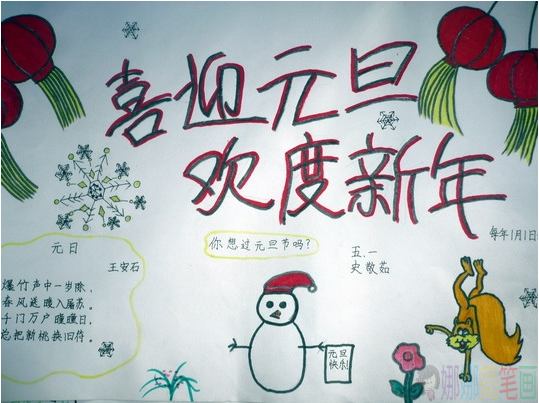 喜迎元旦
欢度新年
每年1月1日
你想过元旦节吗?
五.一
史敬茹
元日
王安石
爆竹声中一岁除,
春风送暖入屠苏。
千门万户曈曈日,
总把新桃换旧符。
元旦
快乐!